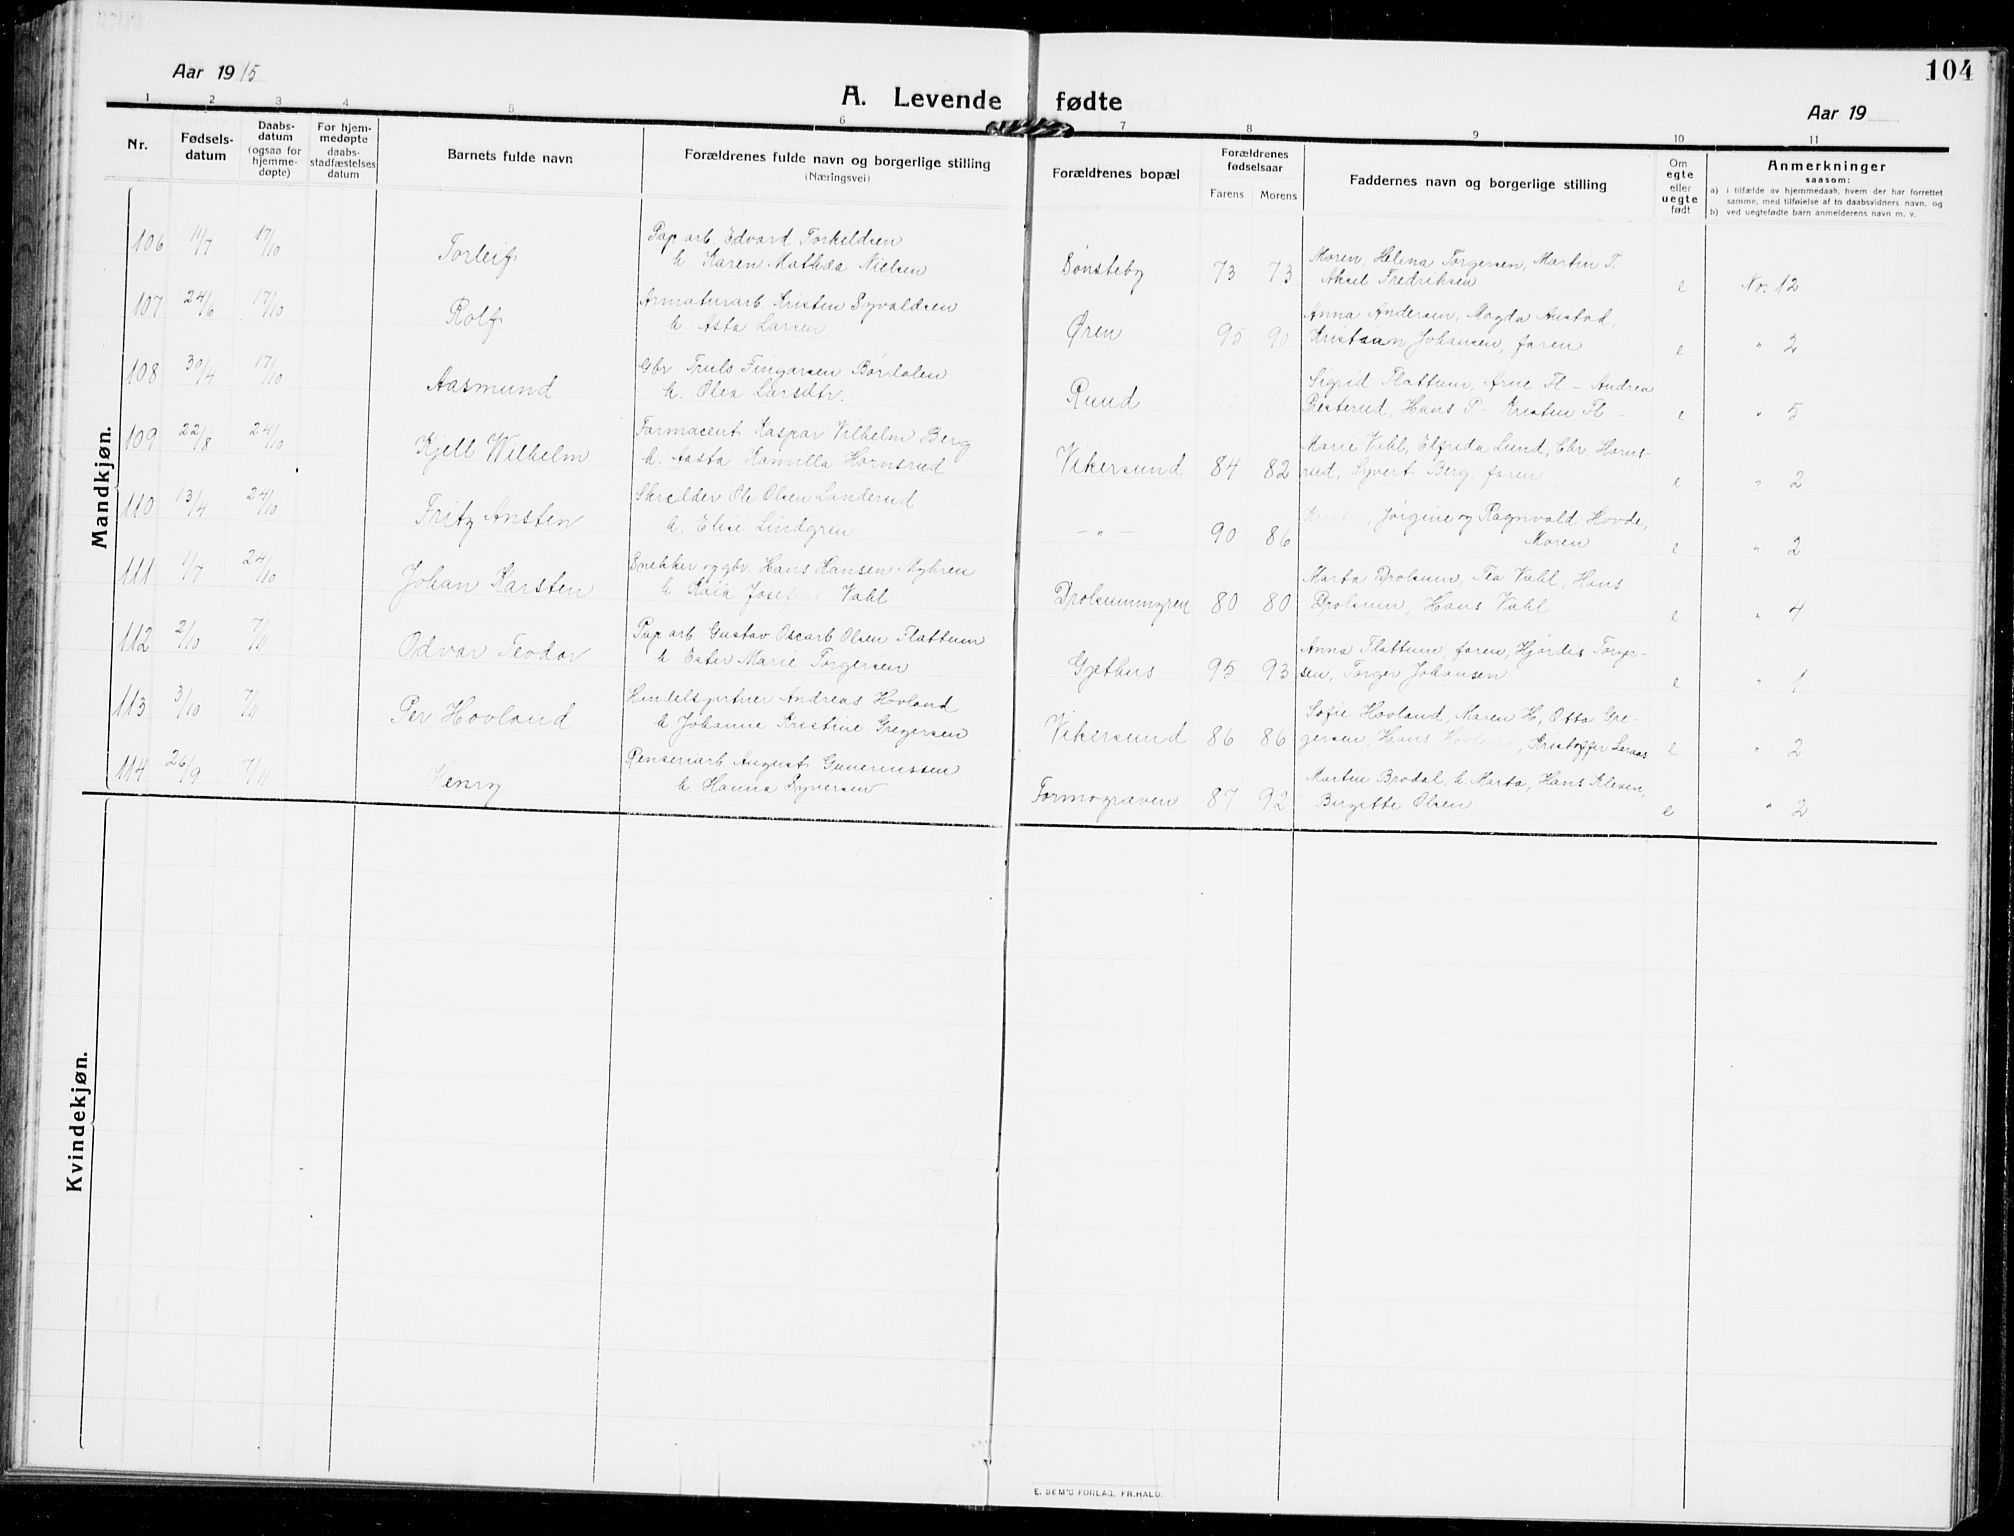 104
Aar 1915
A. Levende fødte
Aar 19
1 2 3 4 5 6 7 8 9 10 11
Nr.
Fødsels-
datum
Daabs-
datum
(ogsaa for
hjemme-
døpte)
For hjem-
medøpte
daabs-
stadfæstelses
datum
Barnets fulde navn
Forældrenes fulde navn og borgerlige stilling
(Næringsvei)
Forældrenes bopæl
Forældrenes
fødselsaar
Farens Morens
Faddernes navn og borgerlige stilling
Om
egte
eller
uegte
født
Anmerkninger
saasom:
a) i tilfælde av hjemmedaab, hvem der har forrettet
samme, med tilføielse af to daabsvidners navn, og
b) ved uegtefødte barn anmelderens navn m. v.
Mandkjøn.
106 11/7 17/10 Torleif
Pap arb Edvard Torkildsen
h. Karen Mathilda Nielsen
Sønsteby 73 73
Moren, Helina Torgersen, Martin T.
Aksel Fredriksen
e No. 12
107 24/6 17/10 Rolf
Armaturarb Kristen Syvaldsen
h. Asta Larsen
Øren 95 90
Anna Andersen, Magda Austad,
Kristian Johansen, faren
e " 2
108 30/4 17/10 Aasmund
Gbr. Truls Fingarsen
h. Olea Larsdtr.
Ruud
Sigrid Flattum, Arne Fl - Andrea
Hans P- Kristen Fl -
e " 5
109 22/8 24/10 Kjell Wilhelm
Farmacent Kaspar Vilhelm Berg
h. Aasta Kamilla Hornsrud
Vikersund 84 82
Marie Vahl, Elfrida Lund, Chr. Horns-
rud, Syvert Berg, faren
e " 2
110 13/4 24/10 Fritz Ansten
Skrædder Ole Olsen Landerud
h. Elise Lindgren
- " - 90 86
Jørgine og Ragnvald Hovde,
Moren
e " 2
111 1/7 24/10 Johan Karsten
Snekker og gbr. Hans Hansen Myhren
h. Kaia Josefine Vahl
Drolsummyren 80 80
Marta Drolsum, Tea Vahl, Hans
Drolsum, Hans Vahl
e " 4
112 2/10 7/11 Odvar Teodor
Pap arb Gustav Oscarb Olsen Flattum
h. Ester Marie Torgersen
Gjethus 95 93
Anna Flattum, faren, Hjørdis Torger-
sen, Torger Johansen
e " 1
113 3/10 7/11 Per Hovland
Handelsgartner Andreas Hovland
h. Johanne Kristine Gregersen
Vikersund 86 86
Sofie Hovland, Maren H, Otta Gre-
gersen, Hans Hovland, Kristoffer Leraas
e " 2
114 26/9 7/11 Henry
Renseriarb August Gunerussen
h. Hanna Syversen
Formograven 87 92
Martin Brodal, h. Marta, Hans Klesen,
Birgitte Olsen
e " 2
Kvindekjøn.
E. SEM'S FORLAG, FR.HALD.